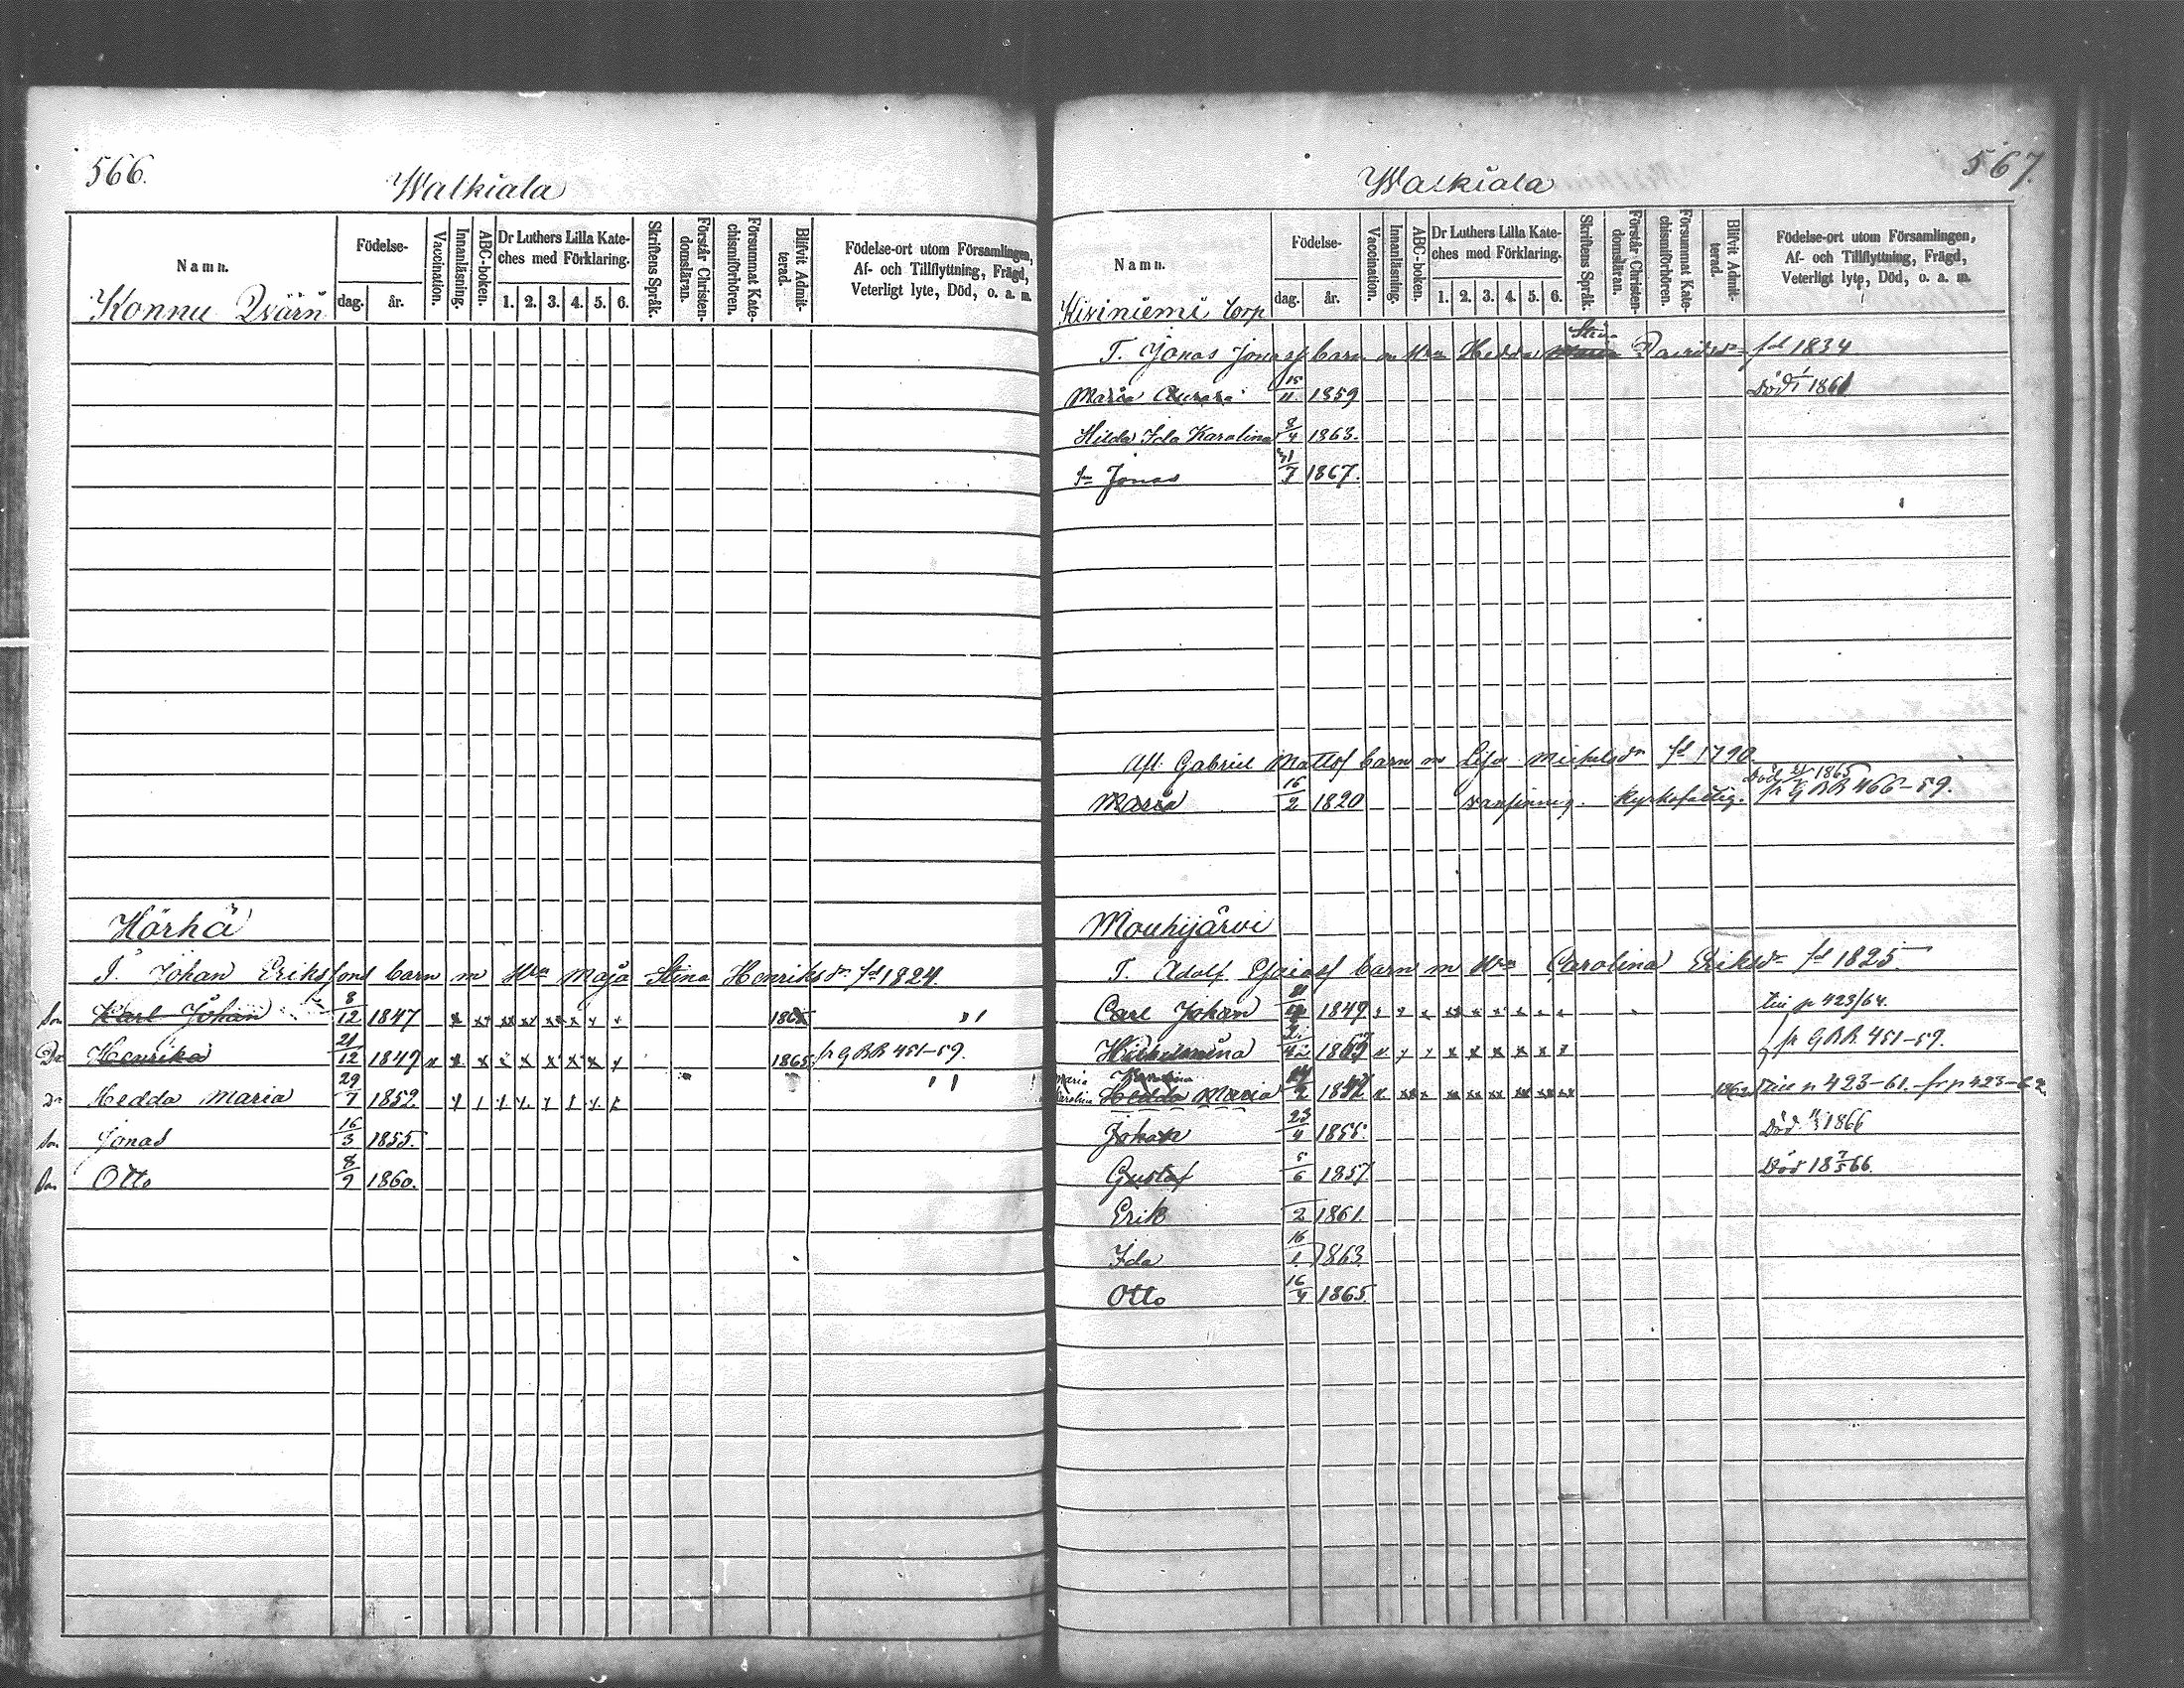 566.
Walkiala
Namn.
Födelse-
dag.
år.
Vaccination.
Innanläsning.
ABC-boken.
Dr Luthers Lilla Kate-
ches med Förklaring.
1. 2. 3. 4. 5. 6.
Skriftens Språk.
Förstår Christen-
domsläran.
Försummat Kate-
chismiförhören.
Blifvit Admit-
terad.
Födelse-ort utom Församlingen,
Af- och Tillflyttning, Frägd,
Veterligt lyte, Död, o. a. m.
Konnu Qvärn
Hörhä
T. Johan Erikssons barn m Hru Maja Stina Henriksdr fd 1824.
Son Karl Johan 8/12 1847
Dr Henrika 21/12 1849 1865 fr GBB 451-59.
Dr Hedda Maria 29/7 1852.
Son Jonas 16/3 1855.
Son Otto 8/9 1860.
567.
Walkiala
Namn.
Födelse-
dag.
år.
Vaccination.
Innanläsning.
ABC-boken.
Dr Luthers Lilla Kate-
ches med Förklaring.
1. 2. 3. 4. 5. 6.
Skriftens Språk.
Förstår Christen-
domsläran.
Försummat Kate-
chismiförhören.
Blifvit Admit-
terad.
Födelse-ort utom Församlingen,
Af- och Tillflyttning, Frägd,
Veterligt lyte, Död, o. a. m.
Kiviniemi torp
Stina
T. Jonas Jonass barn m Hru Hedda Maria Davidsdr fd 1834
Maria Aurora 15/11 1859 Död 1861
Hilda Ida Karolina 8/4 1863.
Sn Jonas 31/7 1867.
Afl. Gabriel Matts barn m Lisa Mickelsdr fd 1790
Död 1865
Maria 16/2 1820 vansinnig. Kyrkofattig. fr GBB 466-59.
Mouhijärvi
T. Adolf Esaiass barn m Hru Carolina Eriksdr fd 1825.
Carl Johan 1849 p 423/64.
fr GBB. 451-59.
Maria Karolina
Karolina
Hedda Maria 1862 p 423-61. fr p 423-62
Johan 23/4 1855. Död 1866
Gustaf 5/6 1857. Död 18 7/5 66.
Erik 2 1861.
Ida 16/1 1863.
Otto 16/4 1865.